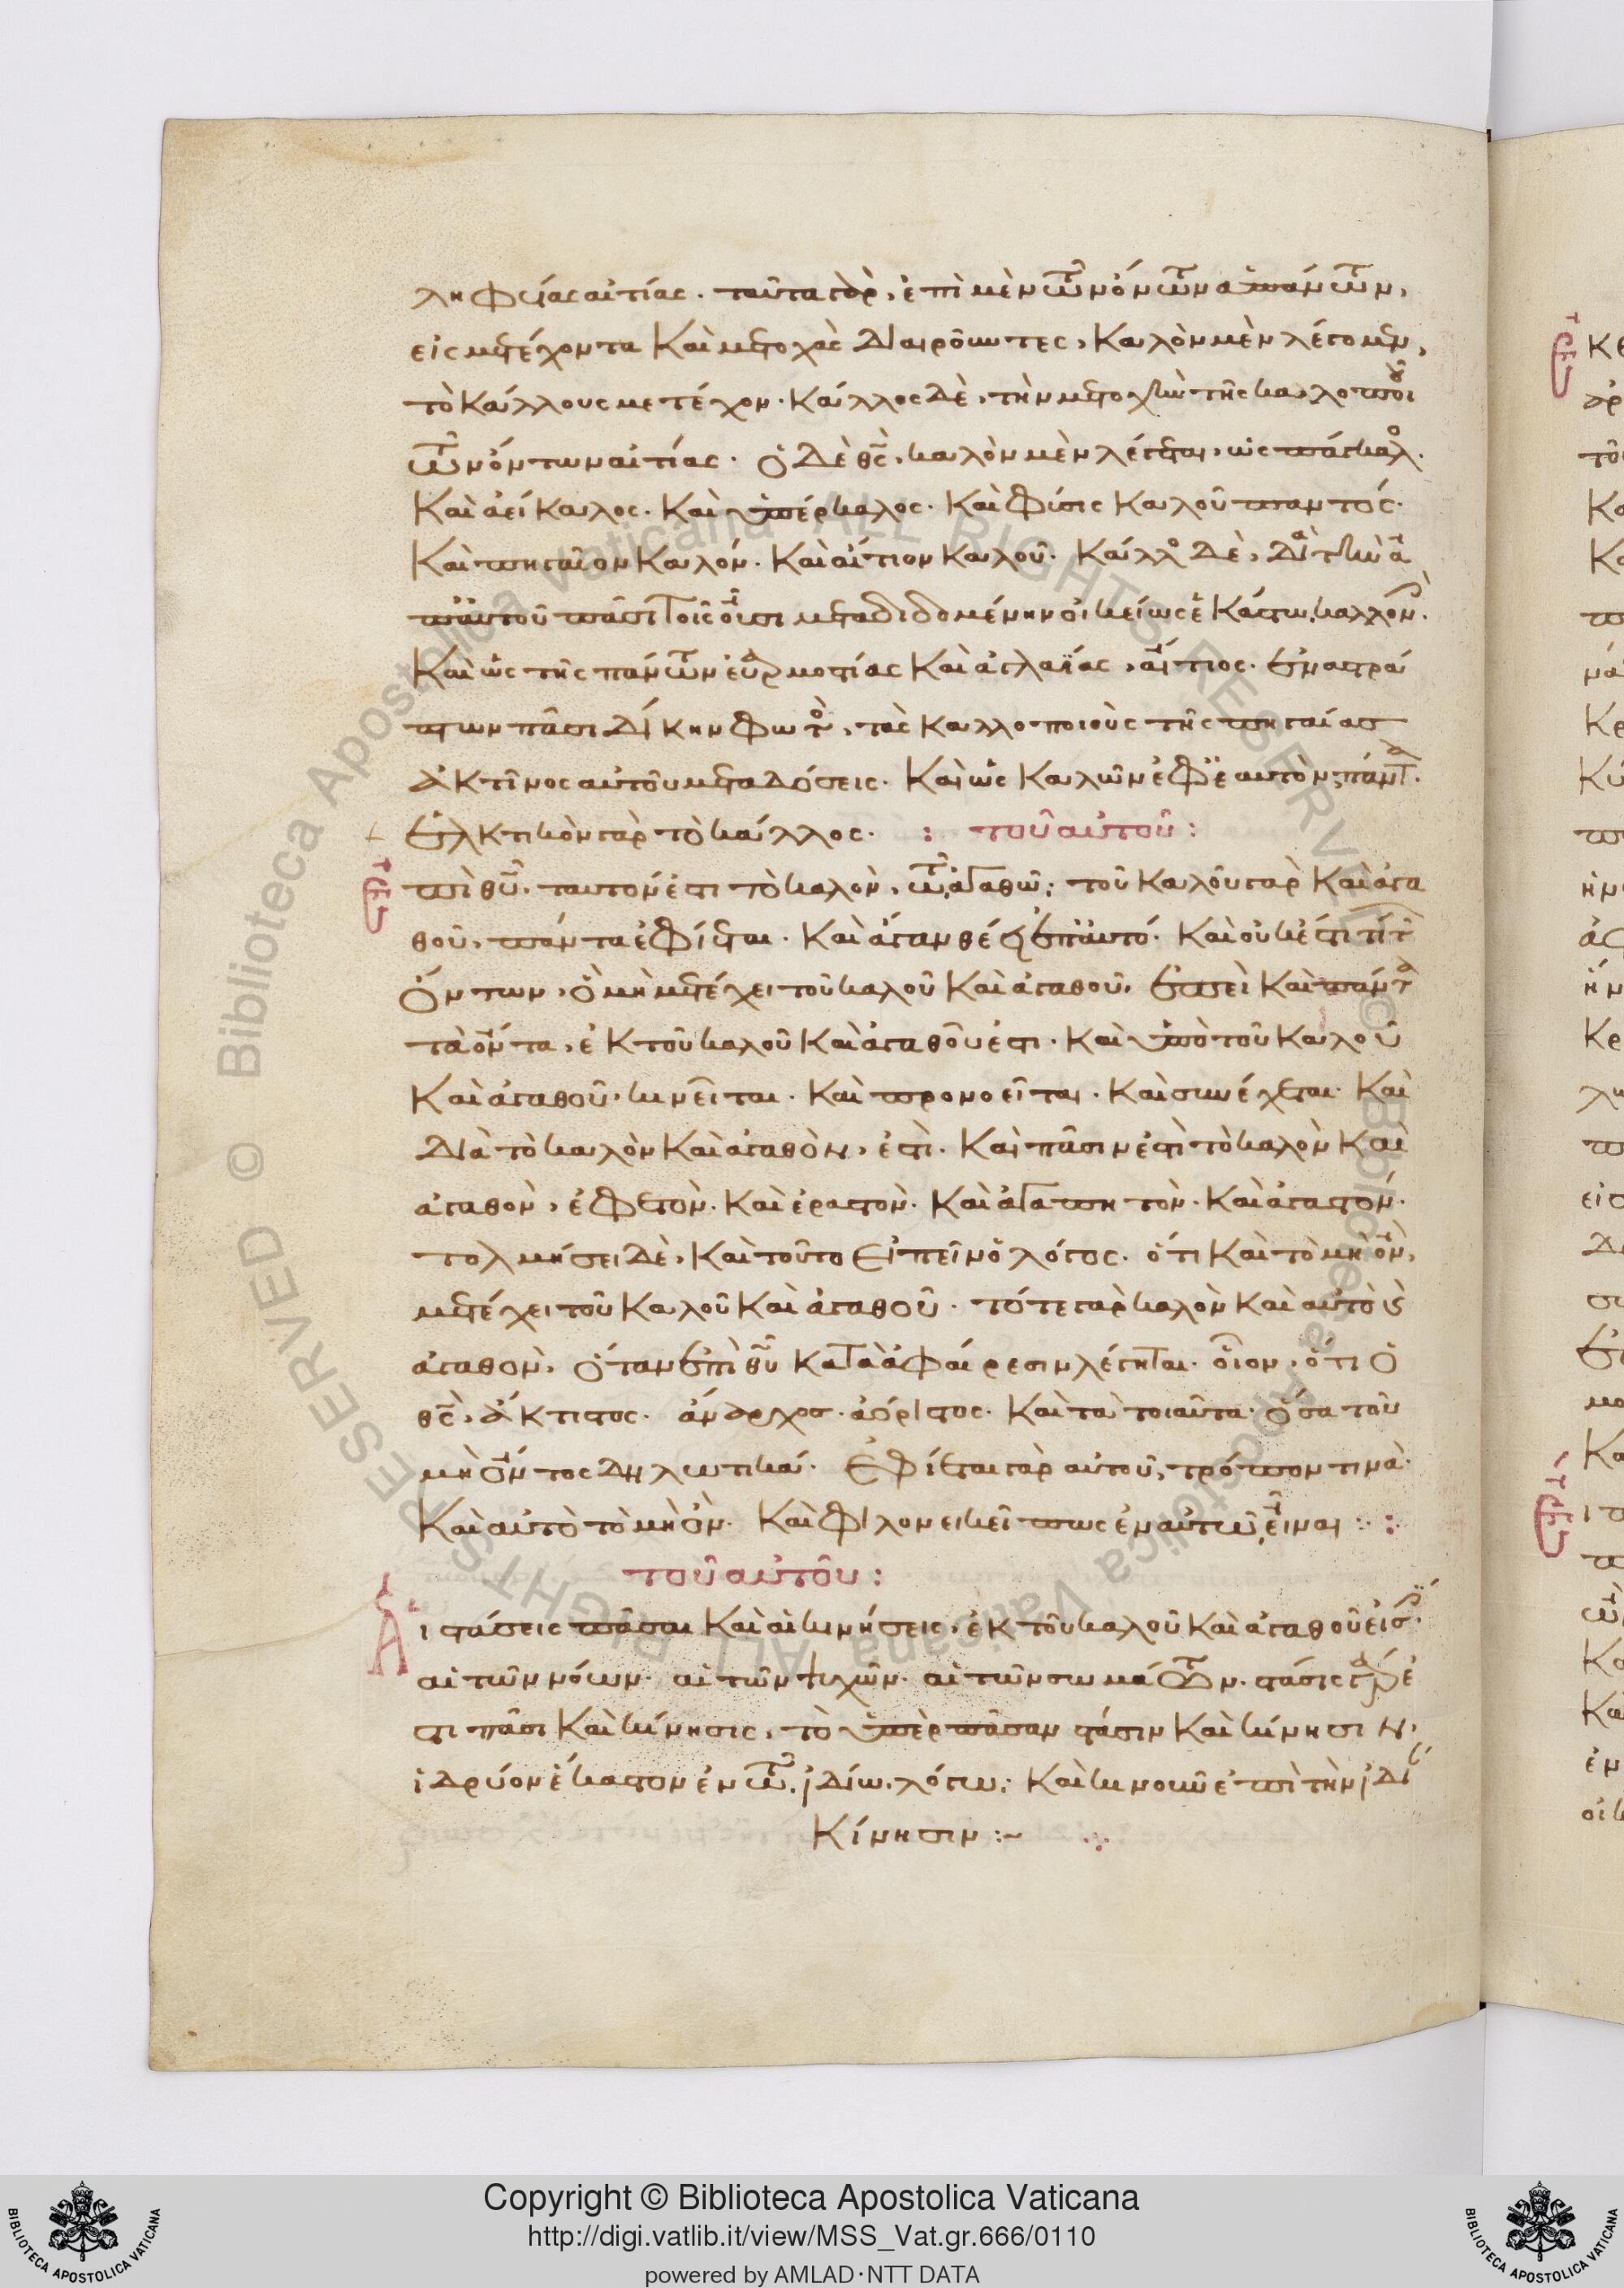 ληφυίας αἰτίας. ταῦτα γὰρ, ἐπὶ μὲν τῶν ὄντων ἁπάντων,
εἰς μετέχοντα καὶ μετοχὰς διαιροῦντες, καλὸν μὲν λέγομεν,
τὸ κάλλους μετέχον. κάλλος δὲ, τὴν μετοχὴν τῆς καλλοποιοῦ
τῶν ὄντων αἰτίας. ὁ δὲ θς, καλὸν μὲν λέγεται, ὡς πάγκαλος.
καὶ ἀεί καλος. καὶ ὑπέρκαλος. καὶ φύσις καλοῦ παντός.
καὶ πηγαῖον καλόν. καὶ αἴτιον καλοῦ. κάλλος δὲ, διὰ τὴν ἀ
π' αὐτοῦ πᾶσι τοῖς οὖσι μεταδιδομένην οἰκείως ἑκάστω καλλονήν.
καὶ ὡς τῆς πάντων εὐαρμοστίας καὶ ἀγλαΐας, αἴτιος. ἐναστρά
πτων πᾶσι δίκην φωτὸς, τὰς καλλοποιοὺς τῆς πηγαίας
ἀκτῖνος αὐτοῦ μεταδόσεις. καὶ ὡς καλῶν ἐφ' ἑαυτὸν πάντα.
ἑλκτικὸν γὰρ τὸ κάλλος. : τοῦ αὐτοῦ:
ἐπὶ θυ, ταυτόν ἐστι τὸ καλὸν, τῶ ἀγαθῶ. τοῦ καλοῦ γὰρ καὶ ἀγα
θοῦ, πάντα ἐφίεται. καὶ ἄγανθέσθ ἐπ' αὐτό. καὶ οὐκ ἔστι τί τῶν
ὄντων, ὃ μὴ μετέχει τοῦ καλοῦ καὶ ἀγαθοῦ, ἐπεὶ καὶ πάντα
τὰ ὄντα, ἐκ τοῦ καλοῦ καὶ ἀγαθοῦ ἐστι. καὶ ὑπὸ τοῦ καλοῦ
καὶ ἀγαθοῦ, κινεῖται. καὶ προνοεῖται. καὶ συνέχεται. καὶ
διὰ τὸ καλὸν καὶ ἀγαθὸν, ἐστί. καὶ πᾶσιν ἐστὶ τὸ καλὸν καὶ
ἀγαθὸν, ἐφετὸν. καὶ ἐραστὸν. καὶ ἀγαπητὸν. καὶ ἀγαστόν.
τολμήσει δὲ, καὶ τοῦτο εἰπεῖν ὁ λόγος. ὅτι καὶ τὸ μὴ ὂν,
μετέχει τοῦ καλοῦ καὶ ἀγαθοῦ. τότε γὰρ καλὸν καὶ αὐτὸ καὶ
ἀγαθὸν, ὅταν ἐπὶ θυ κατὰ ἀφαίρεσιν λέγηται. οἷον, ὅτι ὁ
θς, ἄκτιστος. ἄναρχος. ἀόριστος. καὶ τὰ τοιαῦτα. ὅσα τοῦ
μὴ ὄντος δηλωτικά. ἐφίεται γὰρ αὐτοῦ, τρόπον τινὰ.
καὶ αὐτὸ τὸ μὴ ὂν. καὶ φιλονεικεῖ πως ἐν αὐτῶ εἶναι :·:
τοῦ αὐτοῦ:
Αἱ στάσεις πᾶσαι καὶ αἱ κινήσεις, ἐκ τοῦ καλοῦ καὶ ἀγαθοῦ εἰσὶν.
αἱ τῶν νόων. αἱ τῶν ψυχῶν. αἱ τῶν σωμάτων. στάσις γάρ ἐ
στι πᾶσι καὶ κίνησις, τὸ ὑπὲρ πᾶσαν στάσιν καὶ κίνησιν,
ἱδρύον ἕκαστον ἐν τῶ ἰδίω λόγω. καὶ κινοῦν ἐπὶ τὴν ἰδίαν
κίνησιν:~